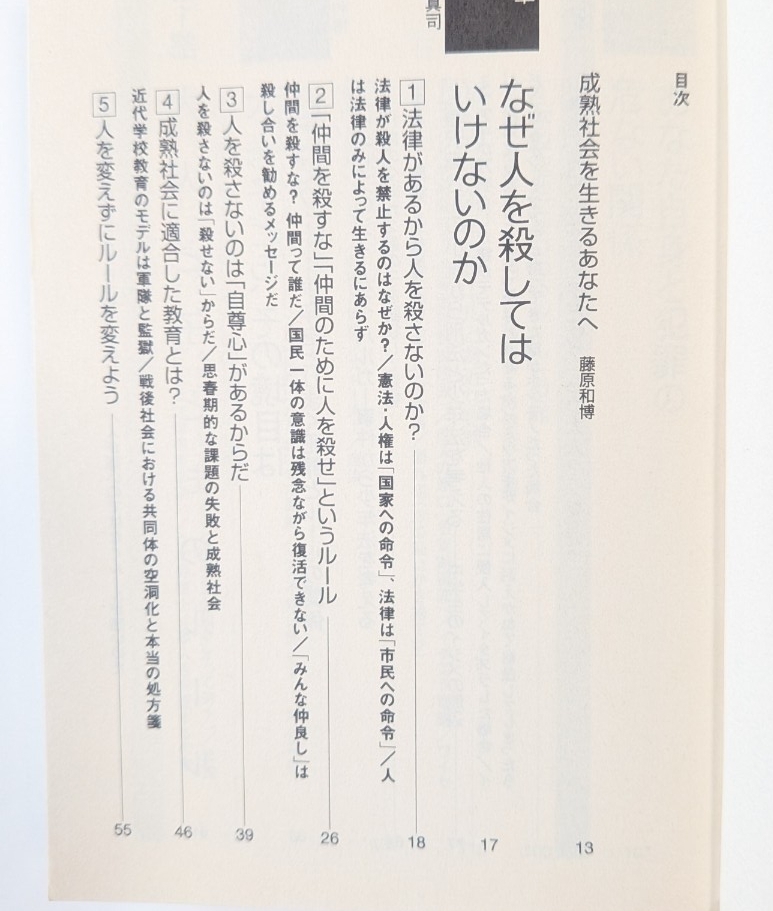 目次
成熟社会を生きるあなたへ 藤原和博 13
章
真司
なぜ人を殺しては
いけないのか 17
1 法律があるから人を殺さないのか? 18
法律が殺人を禁止するのはなぜか?/憲法・人権は「国家への命令」、法律は「市民への命令」/人
は法律のみによって生きるにあらず
2 「仲間を殺すな」「仲間のために人を殺せ」というルール 26
仲間を殺すな? 仲間って誰だ/国民一体の意識は残念ながら復活できない/「みんな仲良し」は
殺し合いを勧めるメッセージだ
3 人を殺さないのは「自尊心」があるからだ 39
人を殺さないのは「殺せない」からだ/思春期的な課題の失敗と成熟社会
4 成熟社会に適合した教育とは? 46
近代学校教育のモデルは軍隊と監獄/戦後社会における共同体の空洞化と本当の処方箋
5 人を変えずにルールを変えよう 55